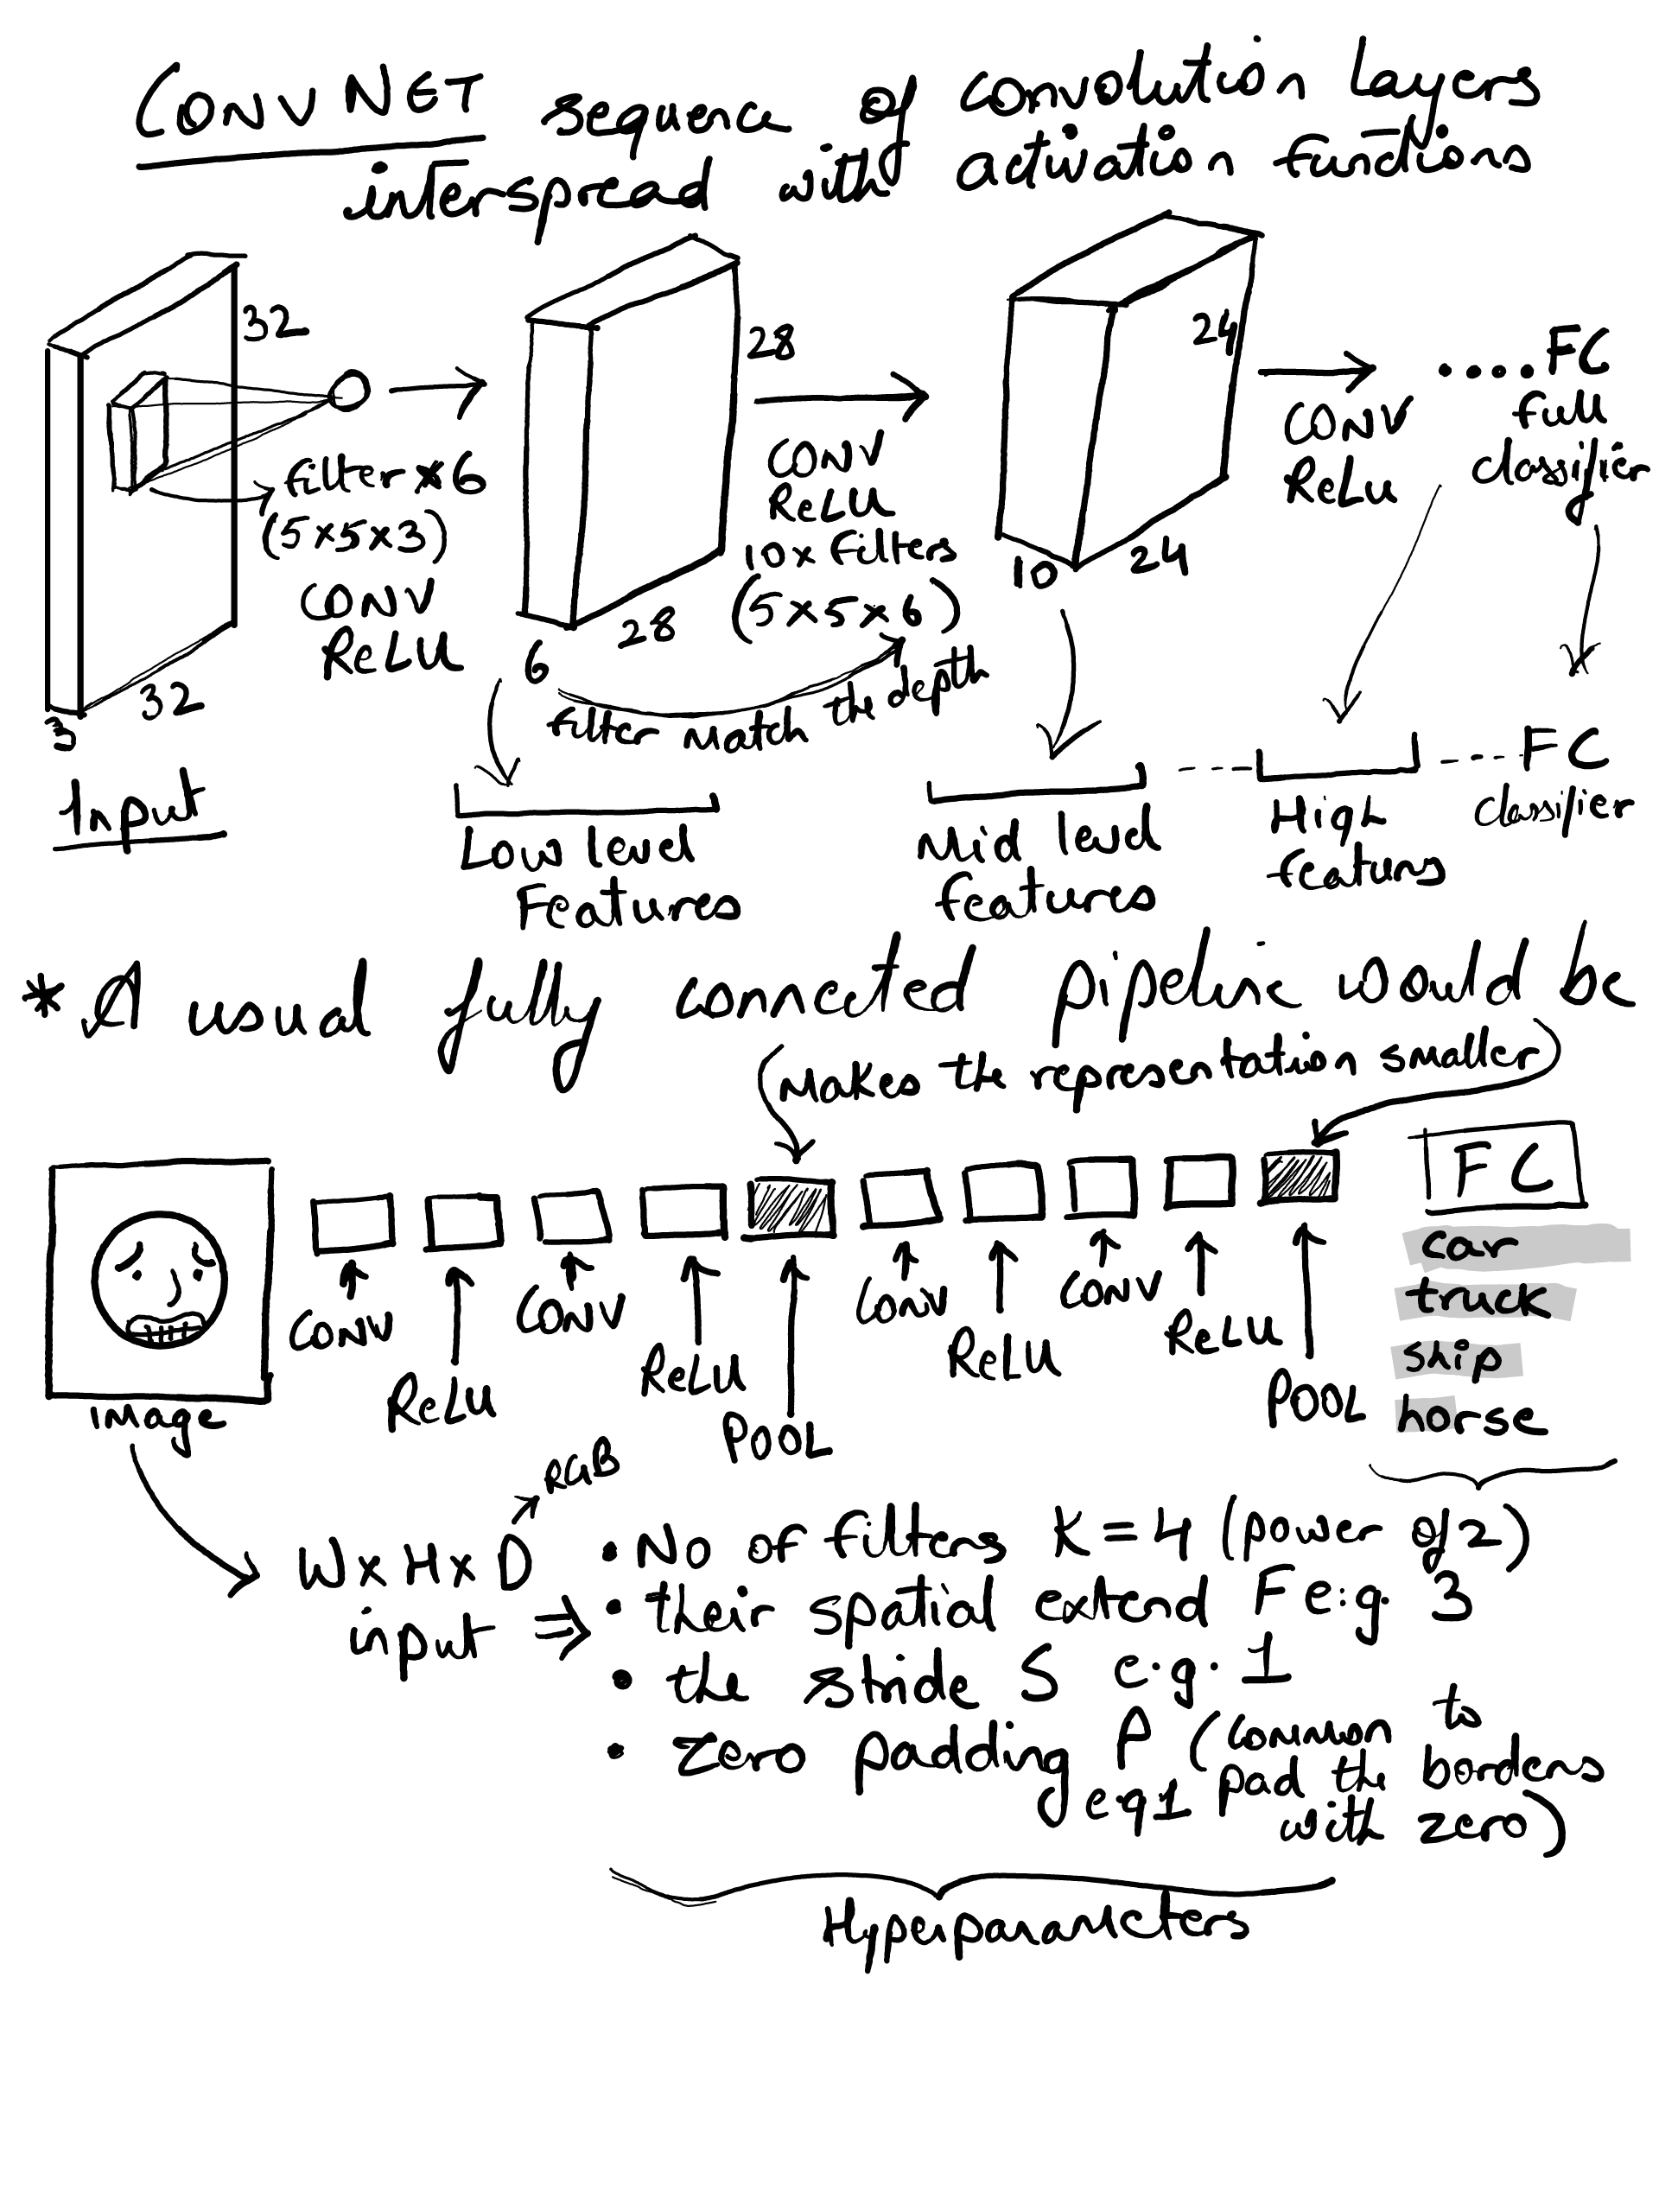 CONVNET sequence of convolution layers
interspread with activation functions
32
28
24
....FC
full
classifier
filter * 6
(5x5x3)
CONV
ReLU
CONV
ReLU
10x filters
(5x5x6)
CONV
ReLu
3
32
6
28
10
24
filter match the depth
Input
Low level
Features
Mid level
features
High
featurs
FC
classifier
* A usual fully connected pipeline would be
(Makes the representation smaller)
FC
car
truck
ship
horse
CONV
ReLU
CONV
ReLU
POOL
CONV
ReLU
CONV
ReLU
POOL
image
RGB
WxHxD
input ⇒
• No of filters K=4 (power of 2)
• their spatial extend F e.g. 3
• the stride S e.g. 1
• zero padding P (common to
eg1 pad the borders
with zero)
Hyperparameters